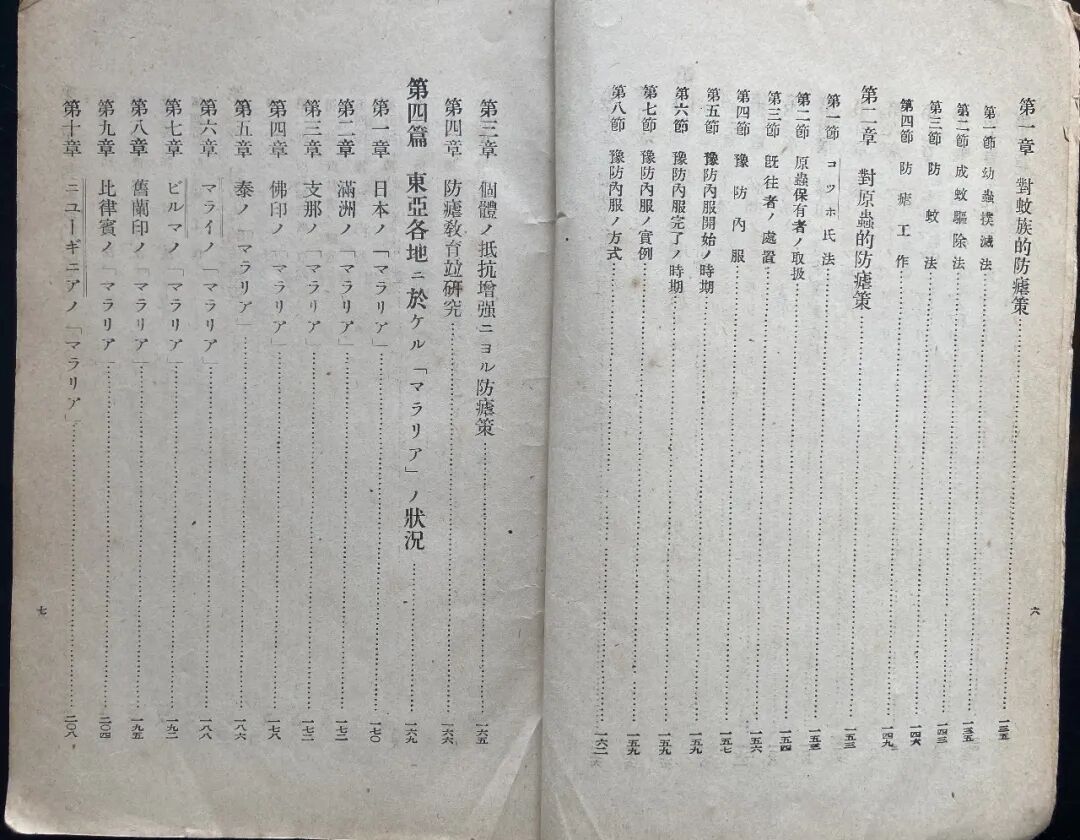 第一章 對蚊族的防瘧策……一三五
第一節 幼蟲撲滅法……一三五
第二節 成蚊驅除法……一四三
第三節 防蚊法……一四六
第四節 防瘧工作……一四九
第二章 對原蟲的防瘧策……一五三
第一節 コッホ氏法……一五三
第二節 原蟲保有者ノ取扱……一五四
第三節 既往者ノ處置……一五六
第四節 豫防內服……一五七
第五節 豫防內服開始ノ時期……一五九
第六節 豫防內服完了ノ時期……一五九
第七節 豫防內服ノ實例……一五九
第八節 豫防內服ノ方式……一六二
六
第三章 個體ノ抵抗增强ニヨル防瘧策……一六五
第四章 防瘧敎育竝硏究……一六六
第四篇 東亞各地ニ於ケル「マラリア」ノ狀況……一六九
第一章 日本ノ「マラリア」……一七〇
第二章 滿洲ノ「マラリア」……一七二
第三章 支那ノ「マラリア」……一七二
第四章 佛印ノ「マラリア」……一七八
第五章 泰ノ「マラリア」……一八六
第六章 マライノ「マラリア」……一八八
第七章 ビルマノ「マラリア」……一九二
第八章 舊蘭印ノ「マラリア」……一九五
第九章 比律賓ノ「マラリア」……二〇四
第十章 ニユーギニアノ「マラリア」……二〇八
七